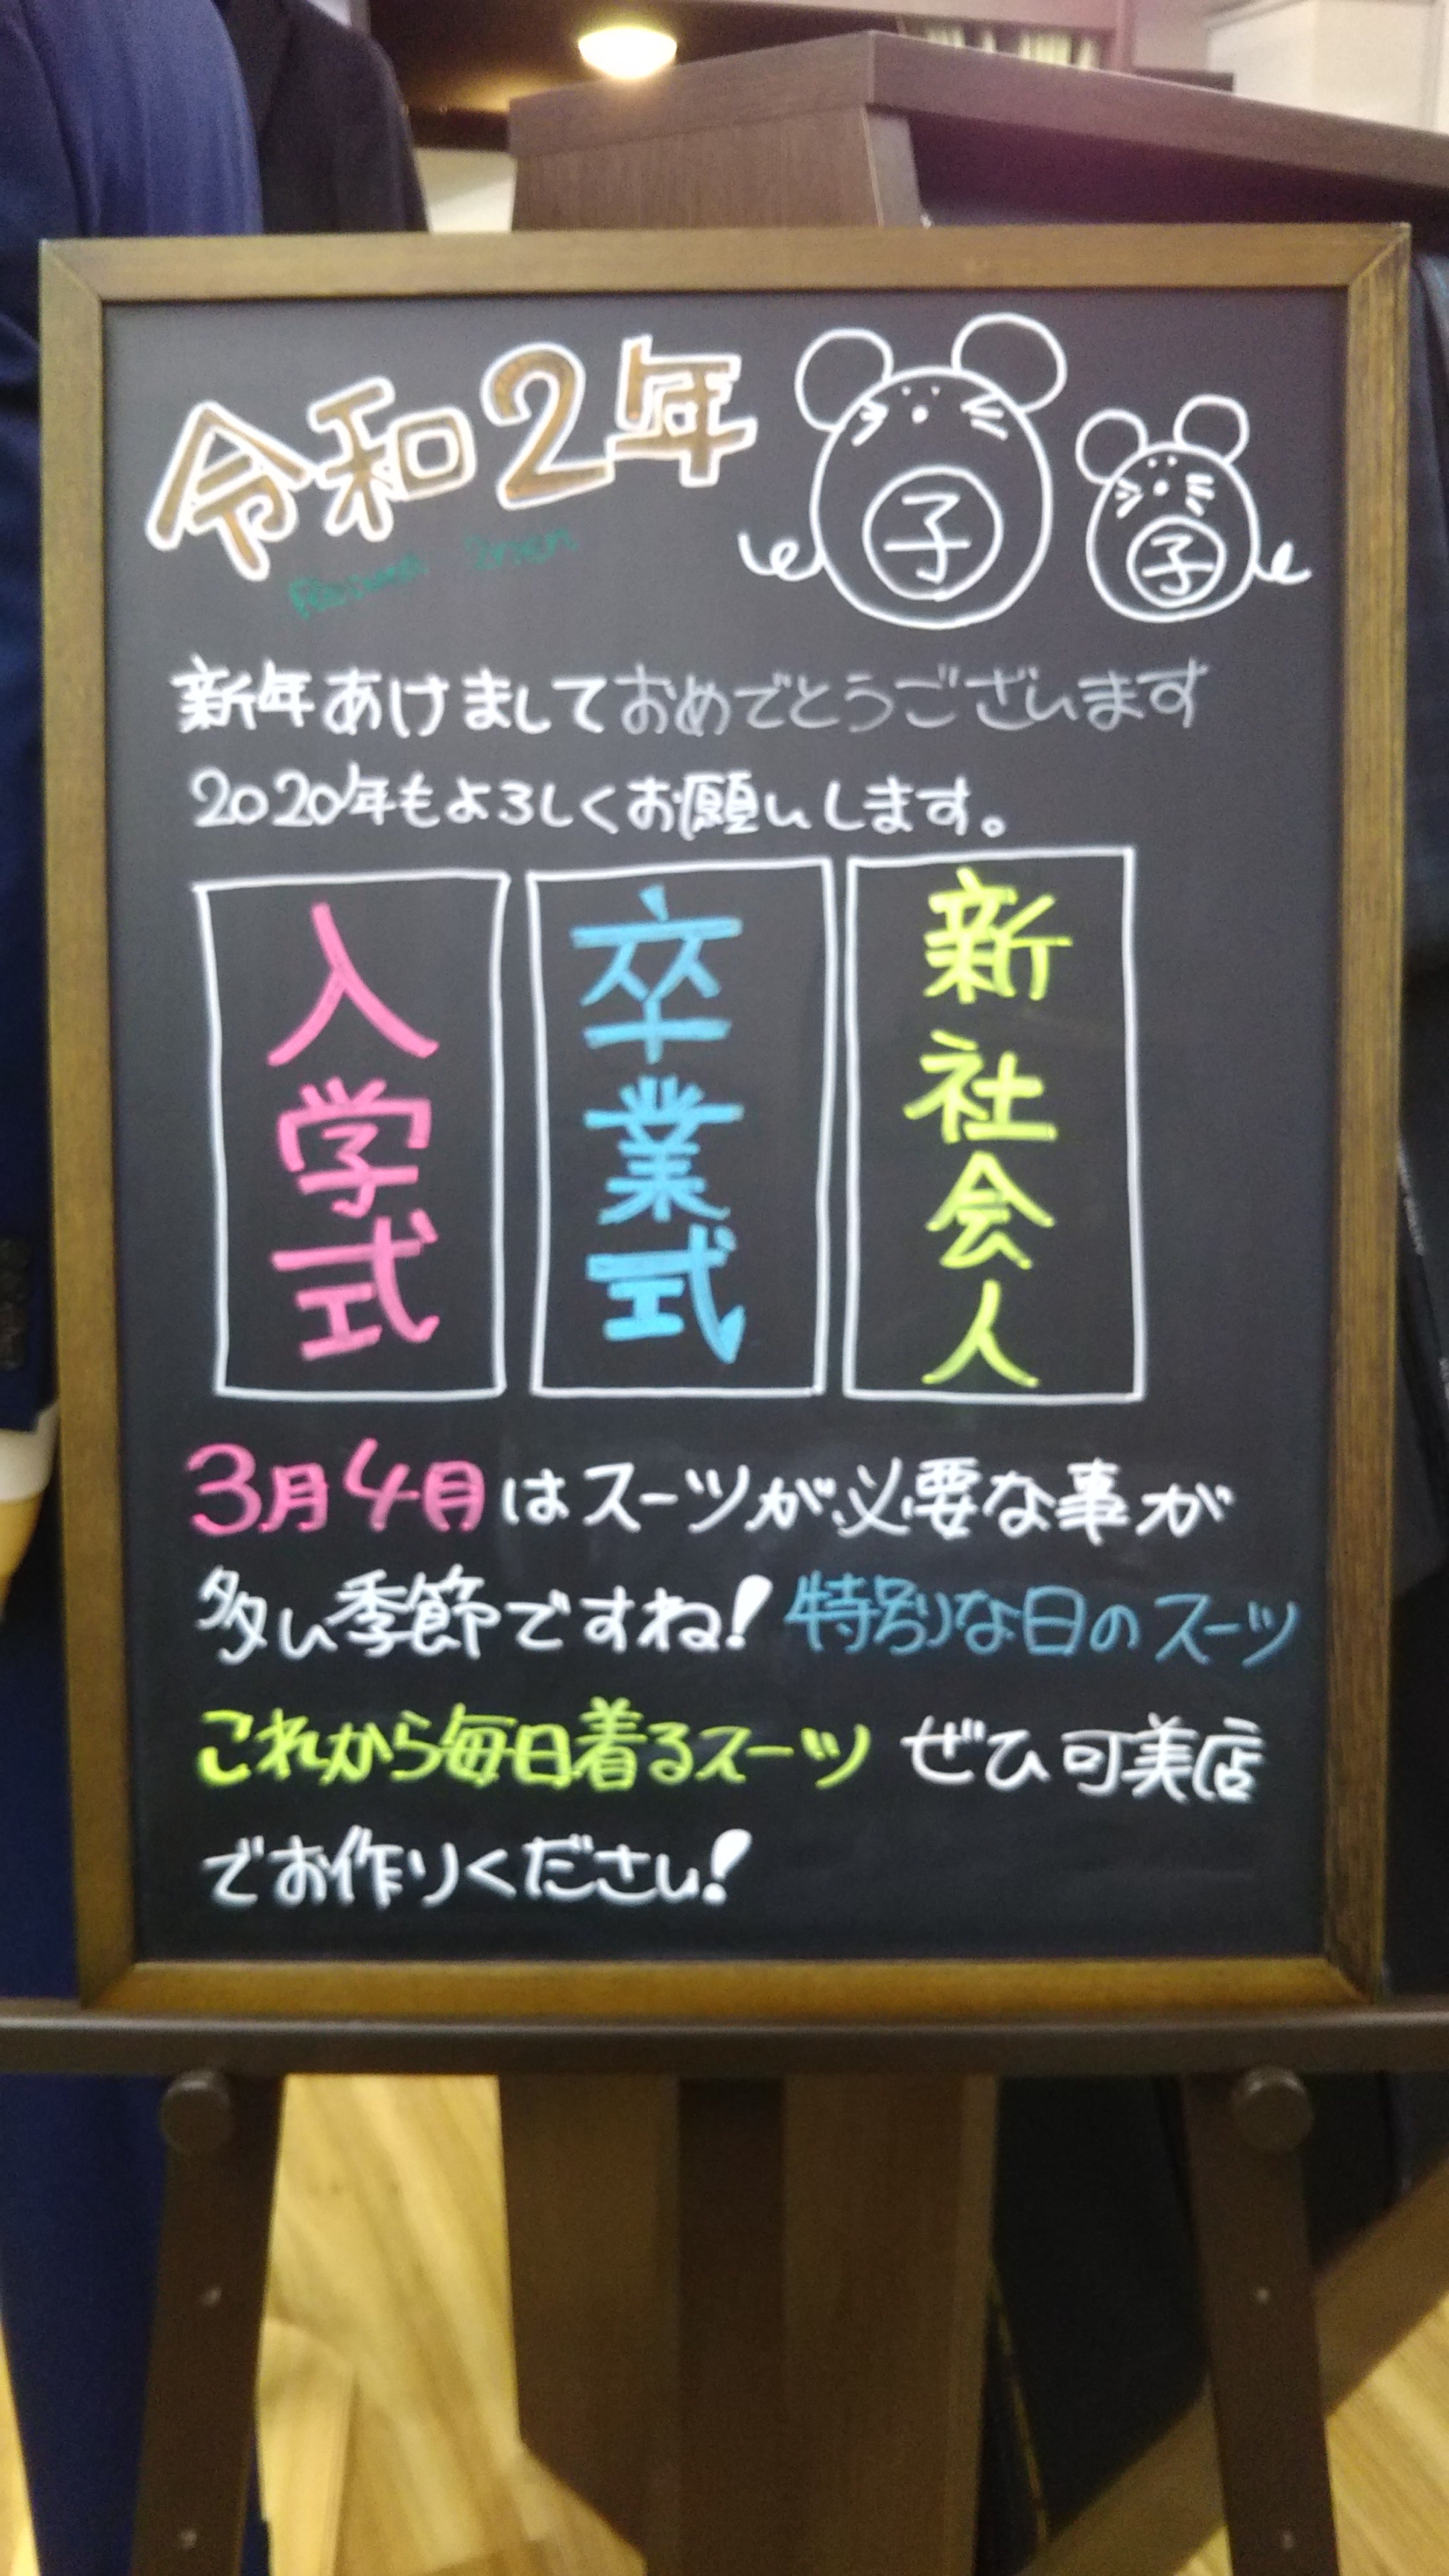 令和2年
子
子
新年あけましておめでとうございます
2020年もよろしくお願いします。
入学式
卒業式
新社会人
3月4月はスーツが必要な事が
多い季節ですね!特別な日のスーツ
これから毎日着るスーツ ぜひ可美店
でお作りください!